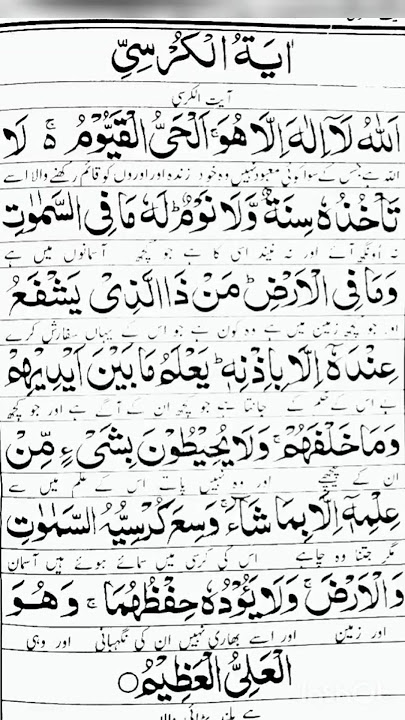 اٰيَةُ الْكُرْسِيِّ
آیت الکرسی
اَللّٰهُ لَاۤ اِلٰهَ اِلَّا هُوَۚ اَلْحَىُّ الْقَيُّوْمُ ۚ لَا
اللہ ہے جس کے سوا کوئی معبود نہیں وہ خود زندہ اور اوروں کو قائم رکھنے والا اسے
تَاْخُذُهٗ سِنَةٌ وَّلَا نَوْمٌؕ لَهٗ مَا فِى السَّمٰوٰتِ
نہ اونگھ آئے اور نہ نیند اسی کا ہے جو کچھ آسمانوں میں ہے
وَمَا فِى الْاَرْضِؕ مَنْ ذَا الَّذِىْ يَشْفَعُ
اور جو کچھ زمین میں ہے وہ کون ہے جو اس کے یہاں سفارش کرے
عِنْدَهٗۤ اِلَّا بِاِذْنِهٖؕ يَعْلَمُ مَا بَيْنَ اَيْدِيْهِمْ
بے اس کے حکم کے جانتا ہے جو کچھ ان کے آگے ہے اور جو کچھ
وَمَا خَلْفَهُمْۚ وَلَا يُحِيْطُوْنَ بِشَىْءٍ مِّنْ
ان کے پیچھے اور وہ نہیں پاتے اس کے علم میں سے
عِلْمِهٖۤ اِلَّا بِمَا شَآءَۚ وَسِعَ كُرْسِيُّهُ السَّمٰوٰتِ
مگر جتنا وہ چاہے اس کی کرسی میں سمائے ہوئے ہیں آسمان
وَالْاَرْضَۚ وَلَا يَئُوْدُهٗ حِفْظُهُمَاۚ وَهُوَ
اور زمین اور اسے بھاری نہیں ان کی نگہبانی اور وہی
الْعَلِىُّ الْعَظِيْمُ○
ہے بلند بڑائی والا